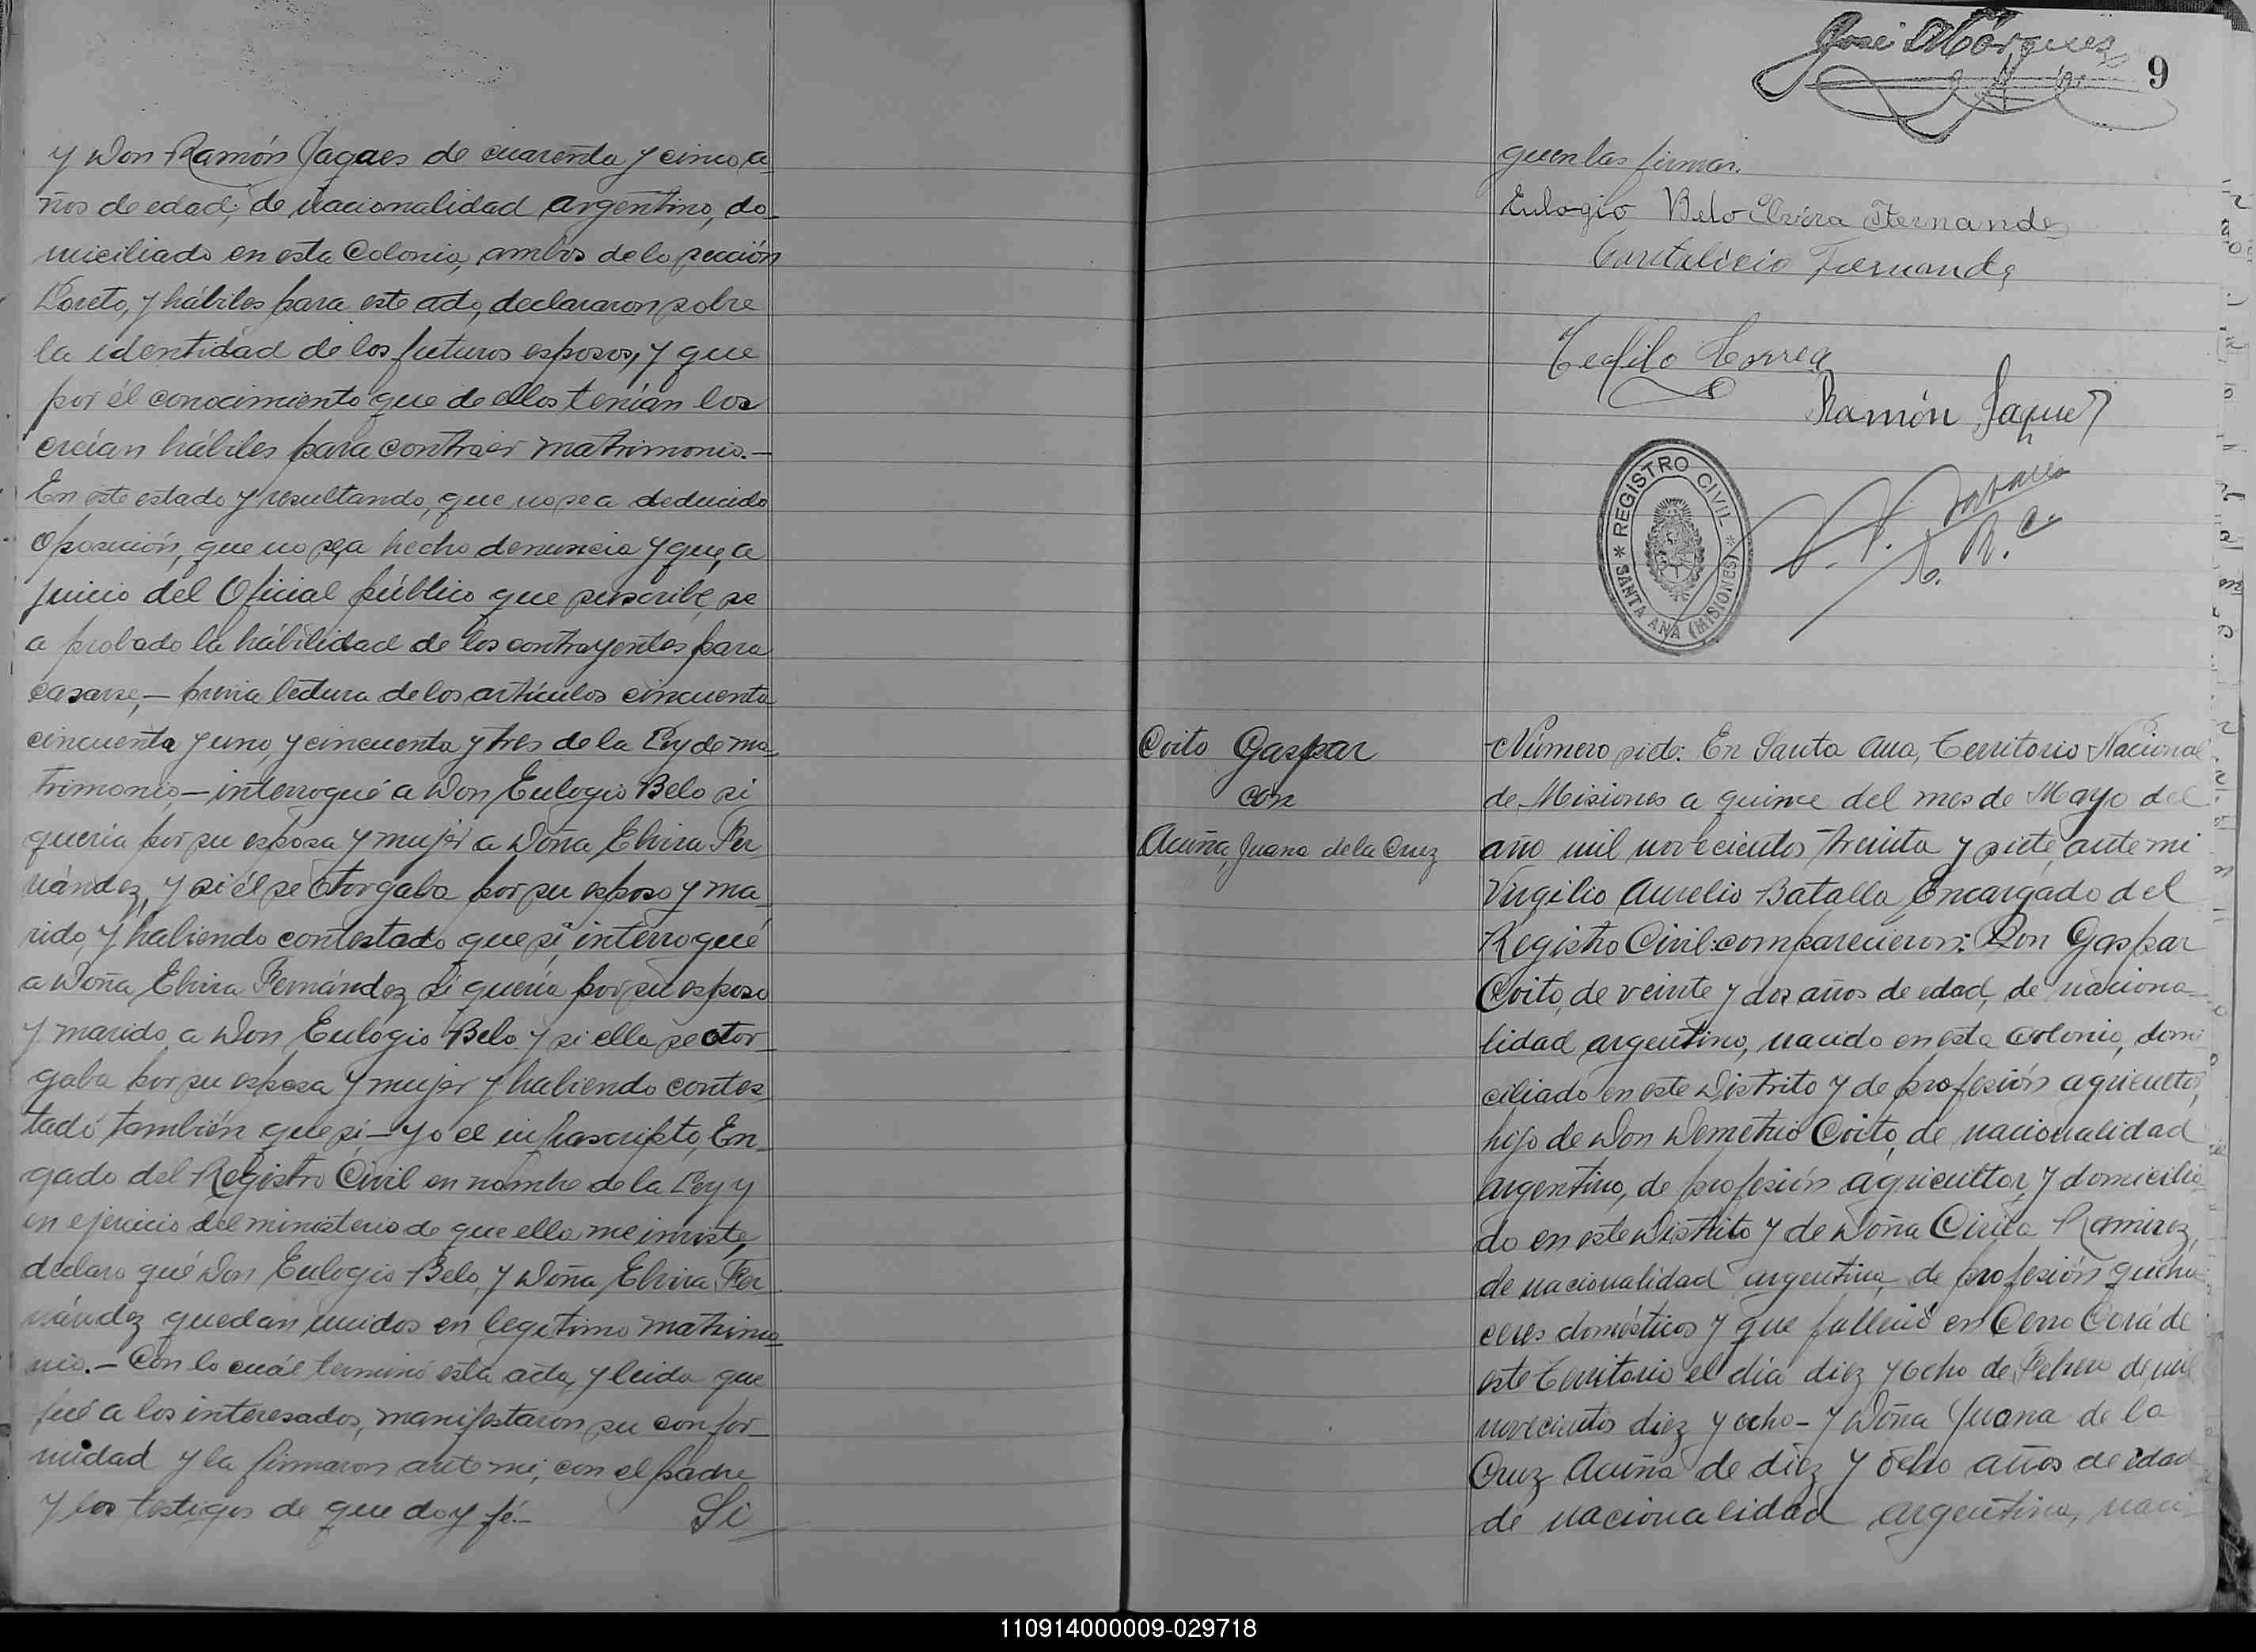 y Don Ramón Jaques de cuarenta y cinco a-
ños de edad, de nacionalidad argentino, do-
miciliado en esta Colonia, ambos de la sección
Loreto, y hábiles para este acto, declararon sobre
la identidad de los futuros esposos, y que
por él conocimiento que de ellos tenían los
creían hábiles para contraer matrimonio.-
En este estado y resultando, que no se a deducido
oposición, que no se a hecho denuncia y que, a
juicio del Oficial público que suscribe, se
a probado la hábilidad de los contrayentes para
casarse,- previa lectura de los artículos cincuenta
cincuenta y uno, y cincuenta y tres de la Ley de ma-
trimonio,- interrogué a Don Eulogio Belo si
quería por su esposa y mujer a Doña Elvira Fer-
nández, y si él se otorgaba por su esposo y ma-
rido, y habiendo contestado que si, interrogué
a Doña Elvira Fernández si quería por su esposo
y marido a Don Eulogio Belo y si ella se otor-
gaba por su esposa y mujer y habiendo contes-
tado también que si- yo el infrascripto, En-
gado del Registro Civil en nombre de la Ley y
en ejercicio del ministerio de que ella me inviste,
declaro qué Don Eulogio Belo, y Doña Elvira Fer-
nández quedan unidos en legitimo matrimo-
nio.- Con lo cuál terminó esta acta, y leida que
fué a los interesados, manifestaron su confor-
midad y la firmaron ante mi, con el padre
y los testigos de que doy fé.- Si-
José Márquez
9
guen las firmas.
Eulogio Belo Elvira Fernandez
Fernandez
Teofilo Correa
Ramón Jaques
REGISTRO CIVIL
SANTA ANA (MISIONES)
Coito Gaspar
con
Acuña, Juana de la Cruz
Número siete: En Santa Ana, Territorio Nacional
de Misiones a quince del mes de Mayo del
año mil novecientos treinta y siete, ante mi
Virgilio Aurelio Batalla, Encargado del
Registro Civil: comparecieron: Don Gaspar
Coito, de veinte y dos años de edad, de naciona-
lidad argentino, nacido en esta Colonia, domi
ciliado en este Distrito y de profesión agricultor,
hijo de Don Demetrio Coito, de nacionalidad
argentino, de profesión agricultor, y domicilia-
do en este Distrito y de Doña Cirila Ramirez,
de nacionalidad argentina, de profesión queha-
ceres domésticos y que falleció en Cerro Corá de
este Territorio el día diez y ocho de Febrero de mil
novecientos diez y ocho- y Doña Juana de la
Cruz Acuña de diez y ocho años de edad
de nacionalidad argentina, naci-
110914000009-029718